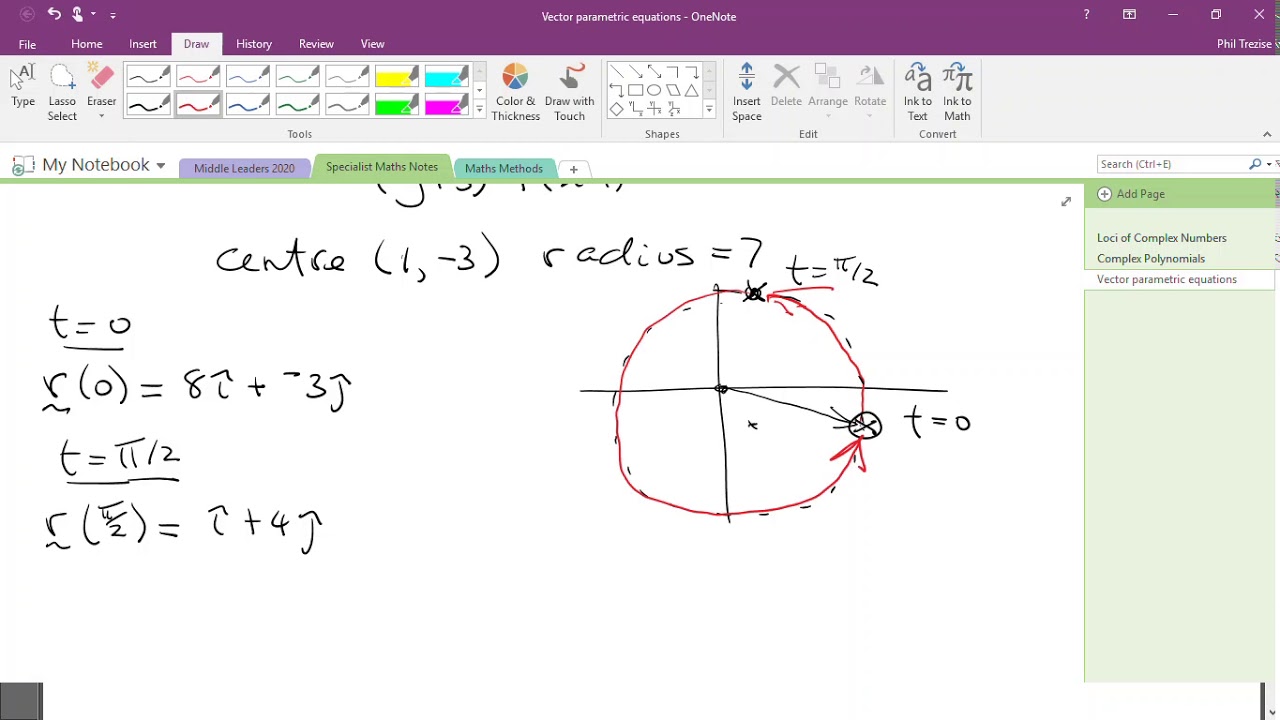 Vector parametric equations - OneNote
?
Phil Trezise
File Home Insert Draw History Review View
Type
Lasso Select
Eraser
Color & Thickness
Draw with Touch
Insert Space
Delete
Arrange
Rotate
Ink to Text
Ink to Math
Tools
Shapes
Edit
Convert
My Notebook
Middle Leaders 2020
Specialist Maths Notes
Maths Methods
Search (Ctrl+E)
Add Page
Loci of Complex Numbers
Complex Polynomials
Vector parametric equations
centre (1, -3) radius = 7
t = π/2
t = 0
r(0) = 8î + ⁻3ĵ
t = 0
t = π/2
r(π/2) = î + 4ĵ